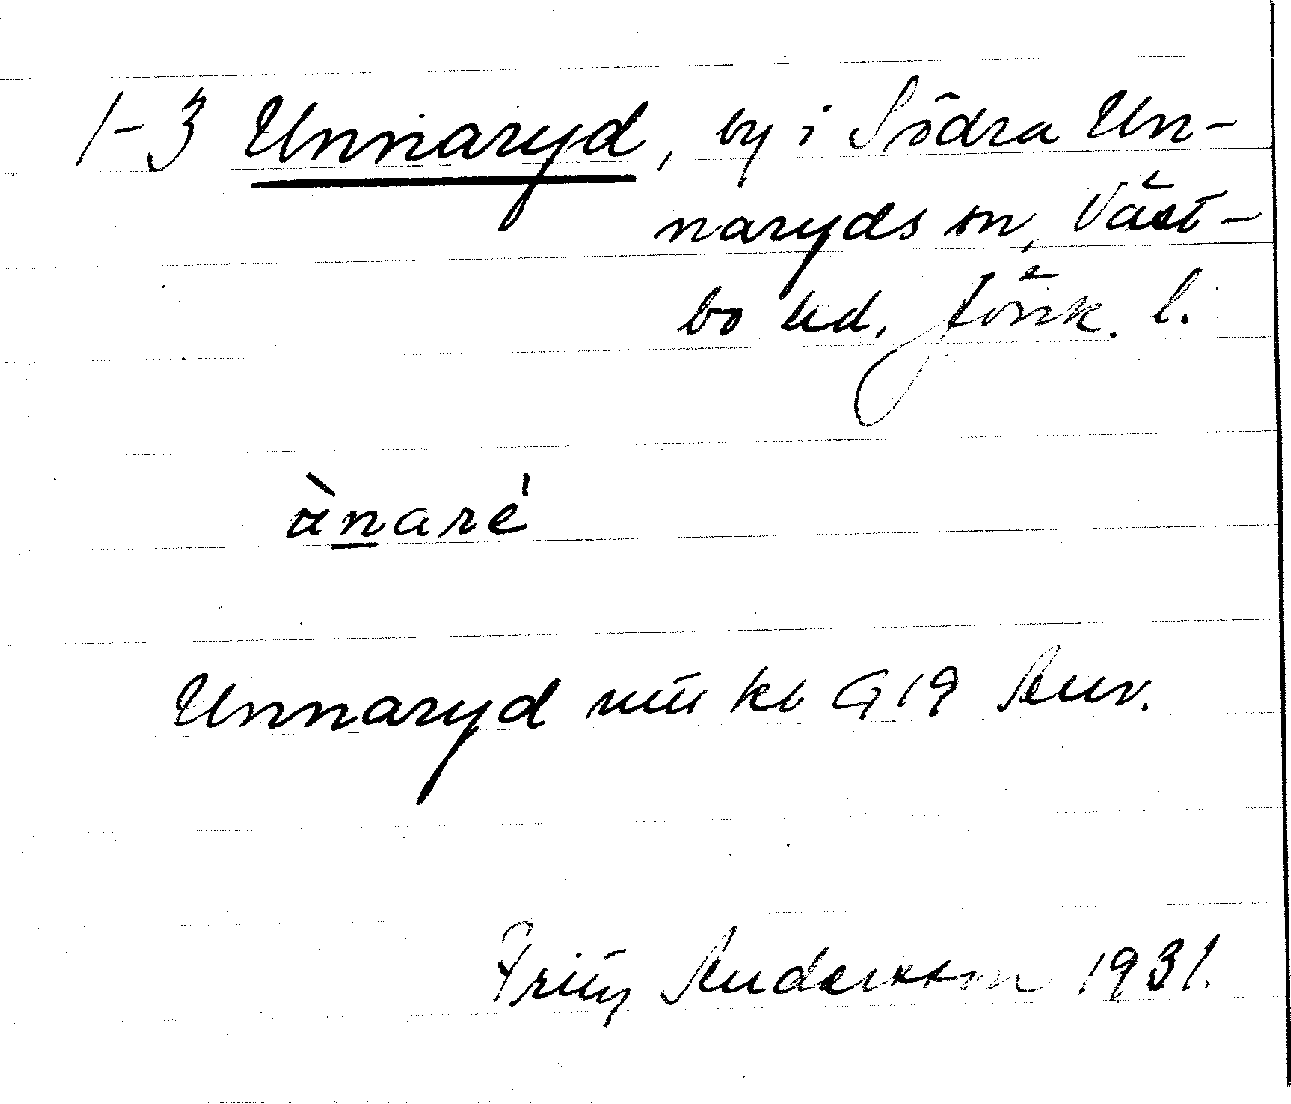 1-3 Unnaryd, by i Södra Un-
naryds sn, Väst-
bo hd, Jönk. l.
ànaré
Unnaryd
Fritz Andersson 1931.